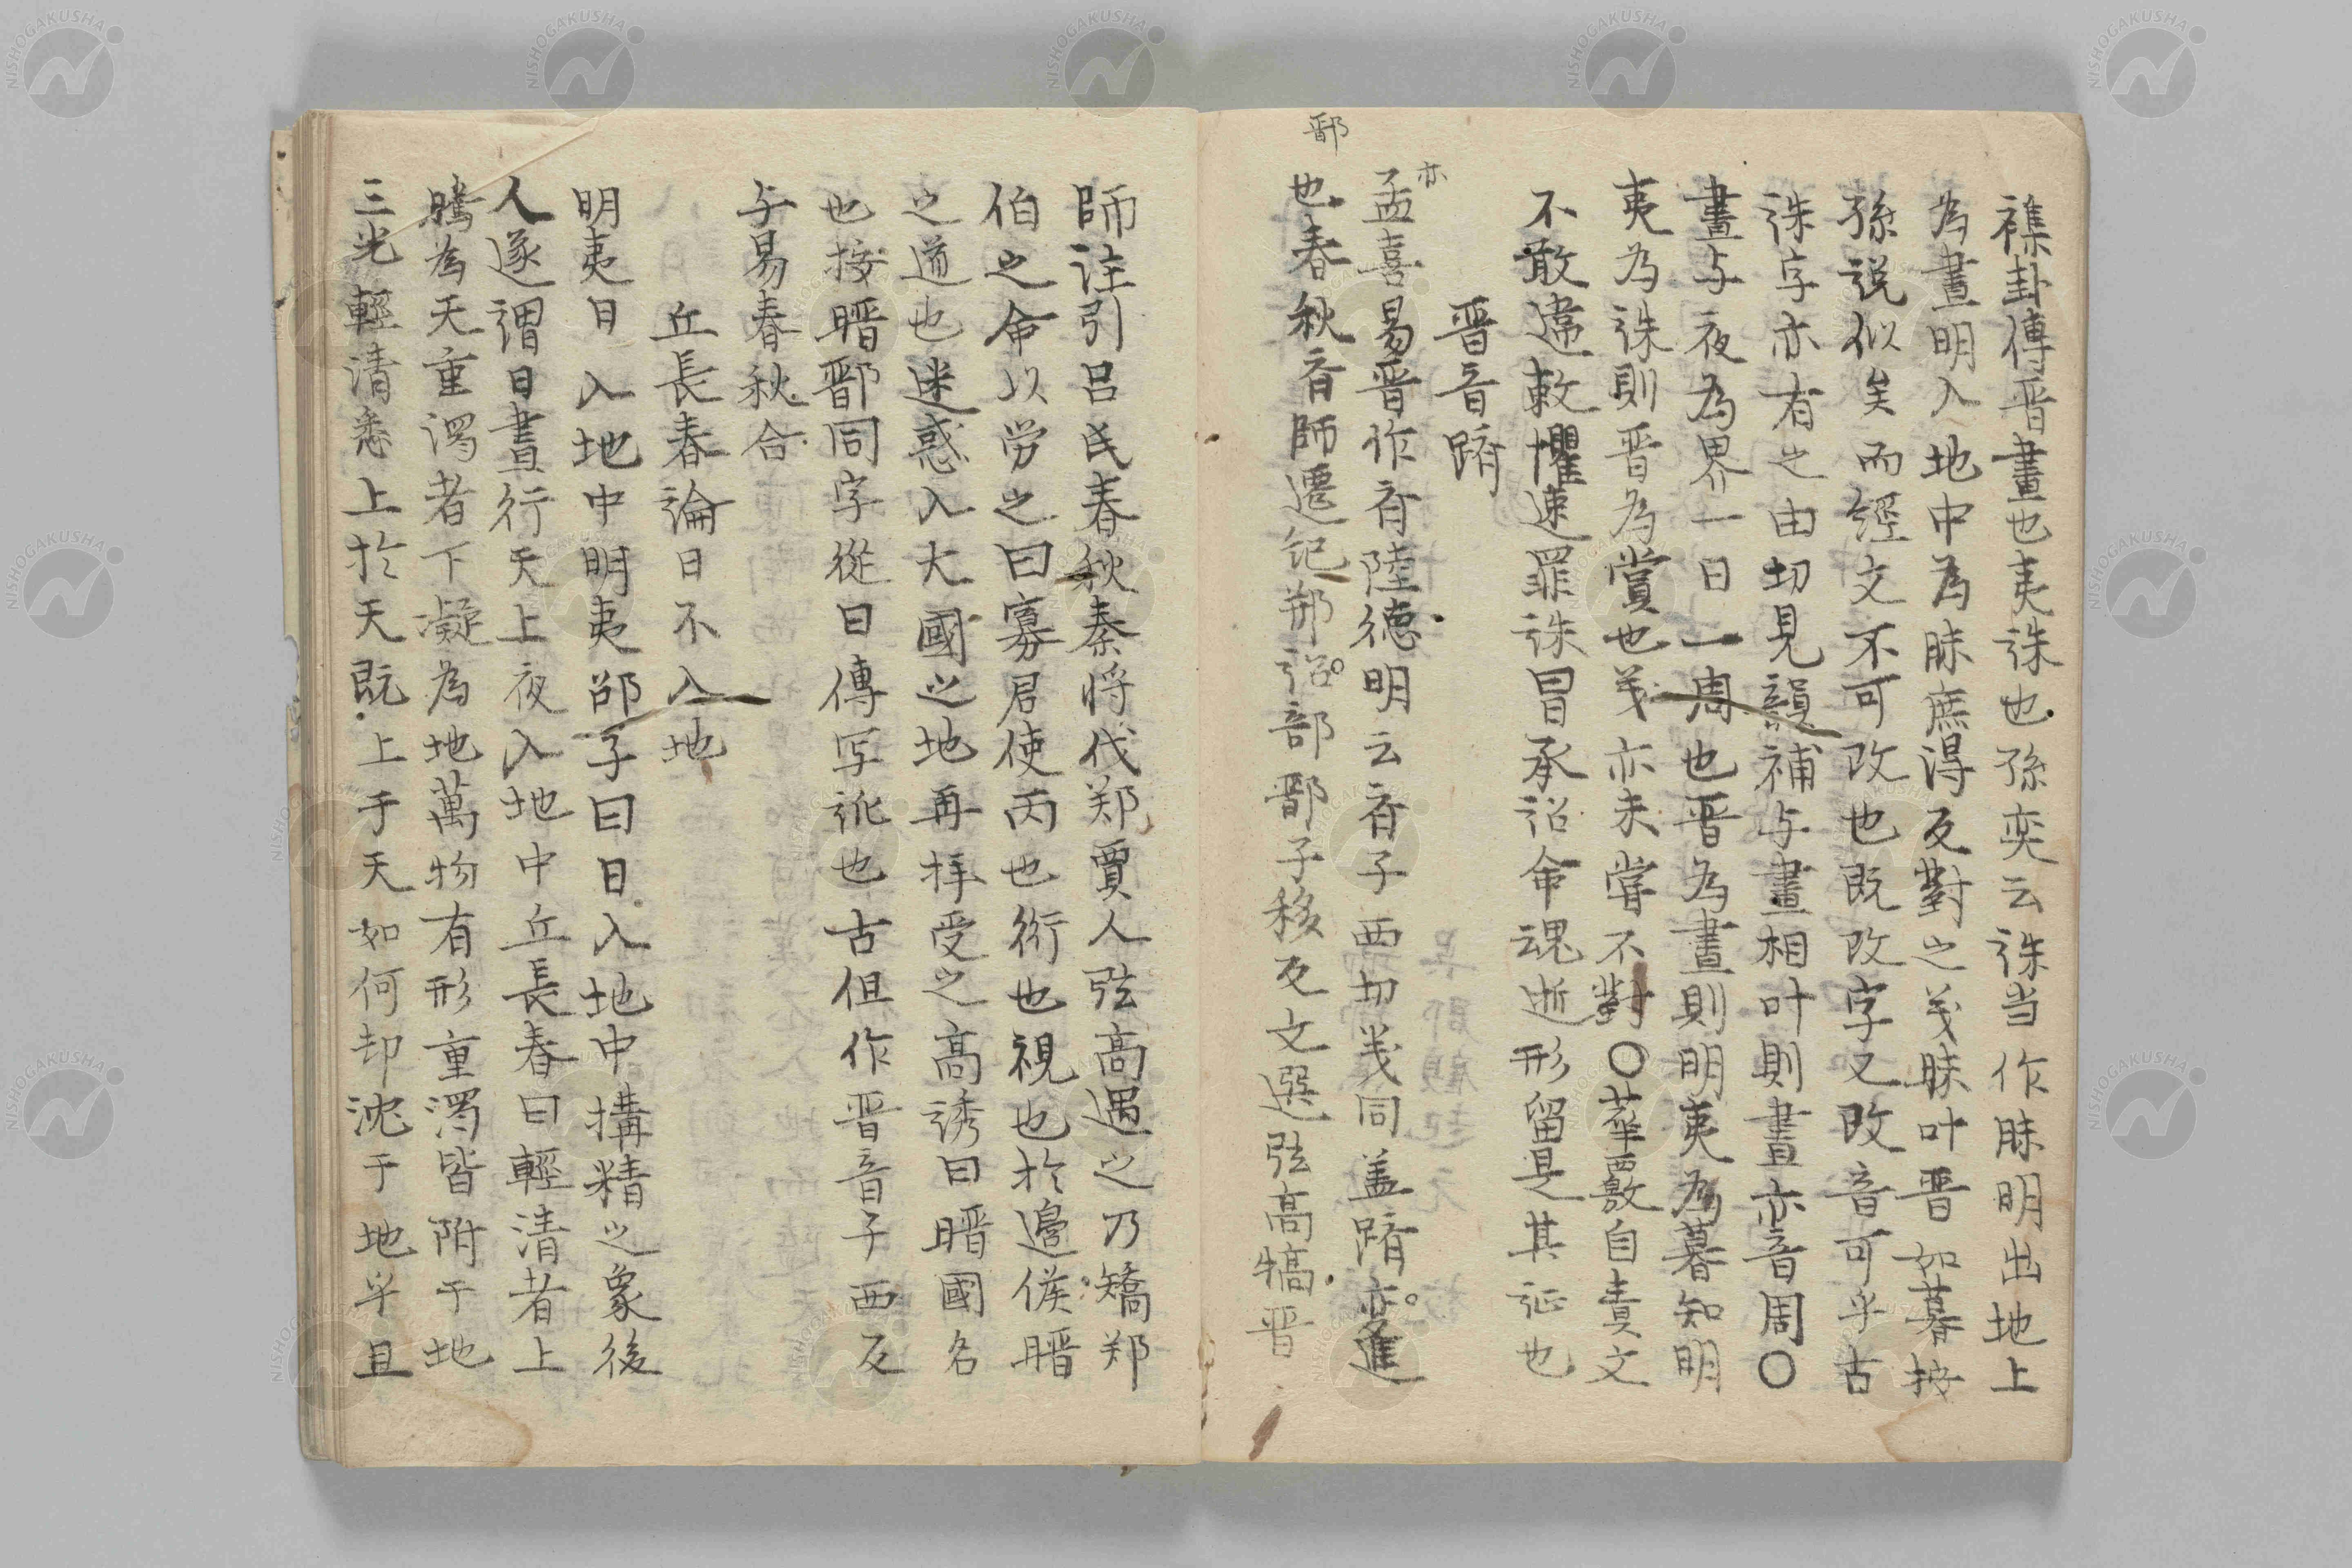 襍卦傳晋晝也夷誅也孫奕云誅当作昧明出地上
為晝明入地中為昧庶得反對之义昧叶晋如暮按
孫説似矣而經文不可改也既改字又改音可乎古
誅字亦有之由切見韻補与晝相叶則晝亦音周〇
晝与夜為界一日一周也晋為晝則明夷為暮知明
夷為誅則晋為賞也义亦未嘗不對〇葦覈自責文
不敢違敕懼速罪誅冒承詔命魂逝形留是其证也
晋音躋
亦
孟喜易晋作㬜陸德明云㬜子西切义同盖躋亦進
鄑
也春秋㬜師遷紀郱詔部鄑子移反文選弦高犒晋
師注引吕氏春秋秦将伐郑賈人弦高遇之乃矯郑
伯之命以労之曰寡君使丙也術也視也於邊候暗
之道也迷惑入大國之地再拝受之高誘曰暗國名
也按暗鄑同字從日傳写訛也古但作晋音子西反
与易春秋合
丘長春論日不入地
明夷日入地中明夷邵子曰日入地中搆精之象後
人遂謂日晝行天上夜入地中丘長春曰輕清者上
騰為天重濁者下凝為地萬物有形重濁皆附于地
三光輕清悉上於天既上于天如何却沈于地乎且
NISHOGAKUSHA